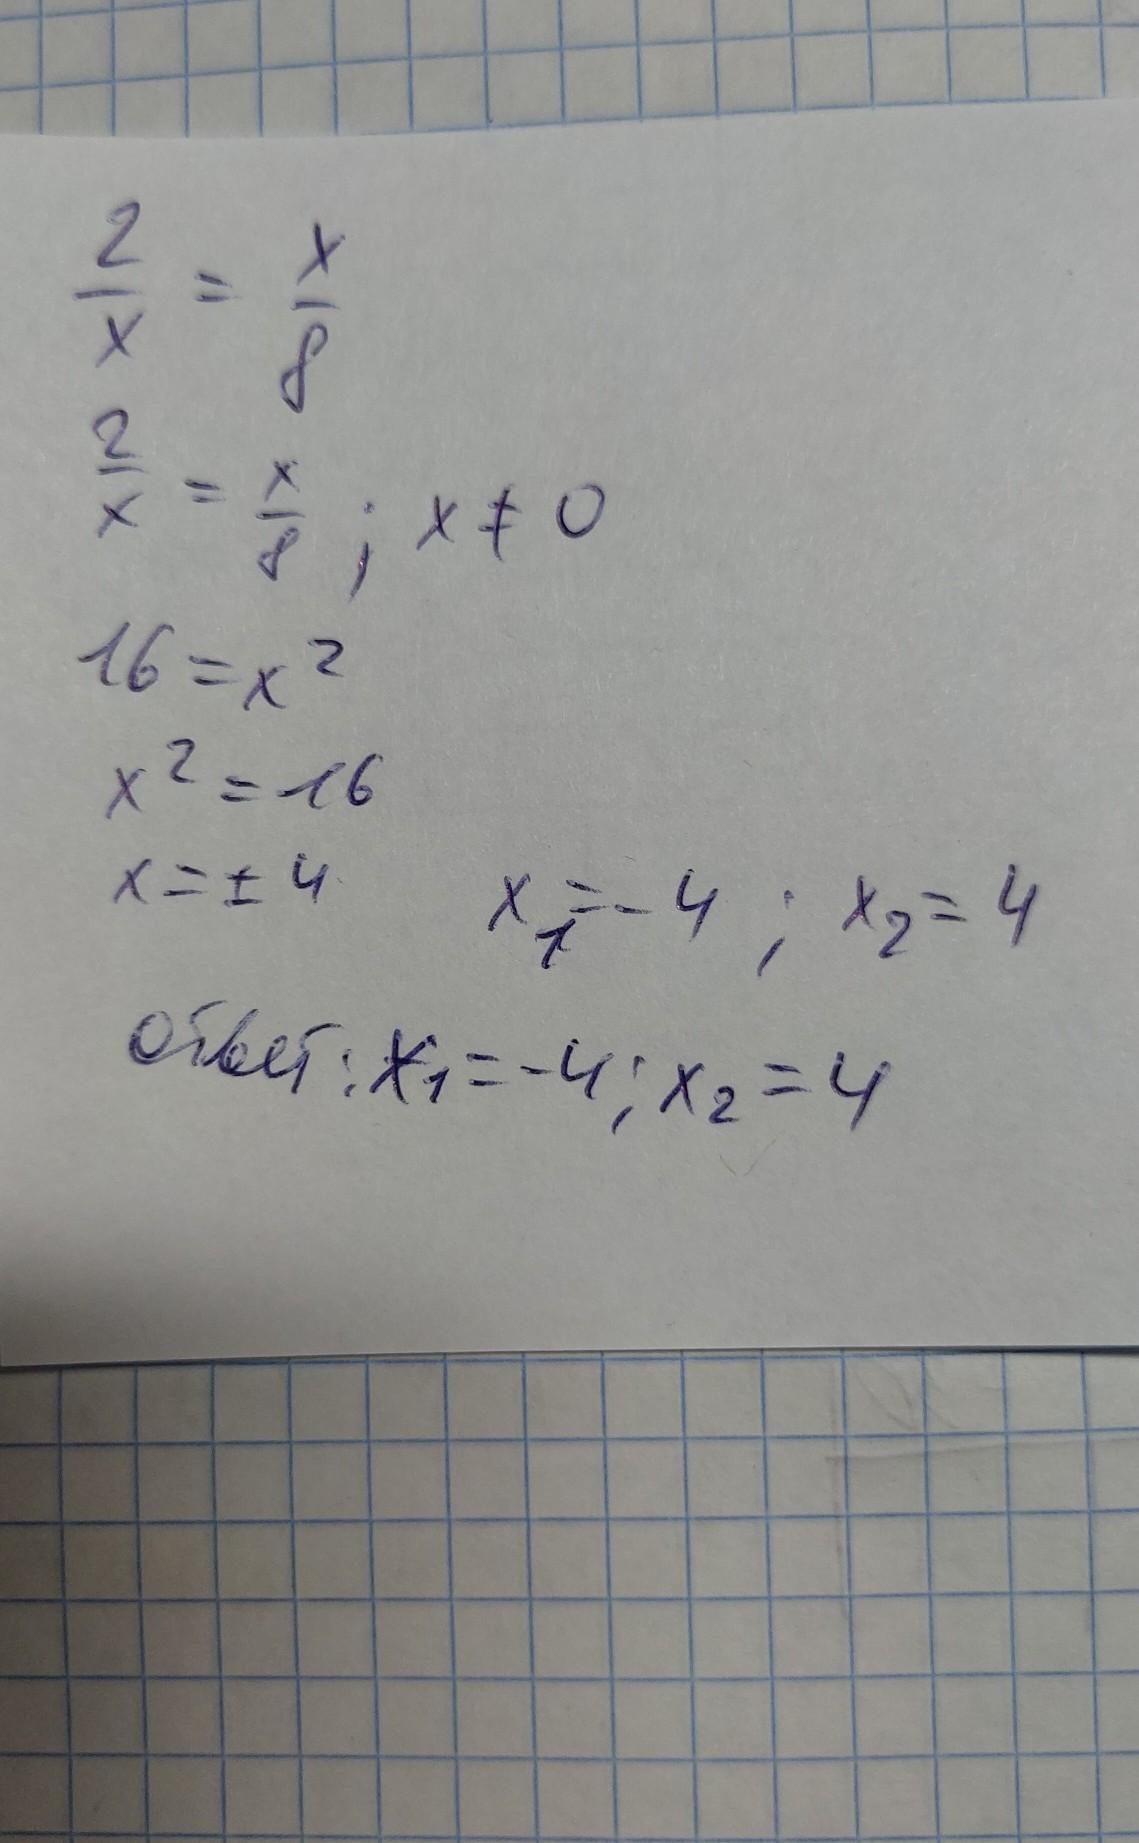 2/x = x/8
2/x = x/8 ; x ≠ 0
16 = x²
x² = 16
x = ± 4 x₁ = - 4 ; x₂ = 4
ответ: x₁ = -4; x₂ = 4